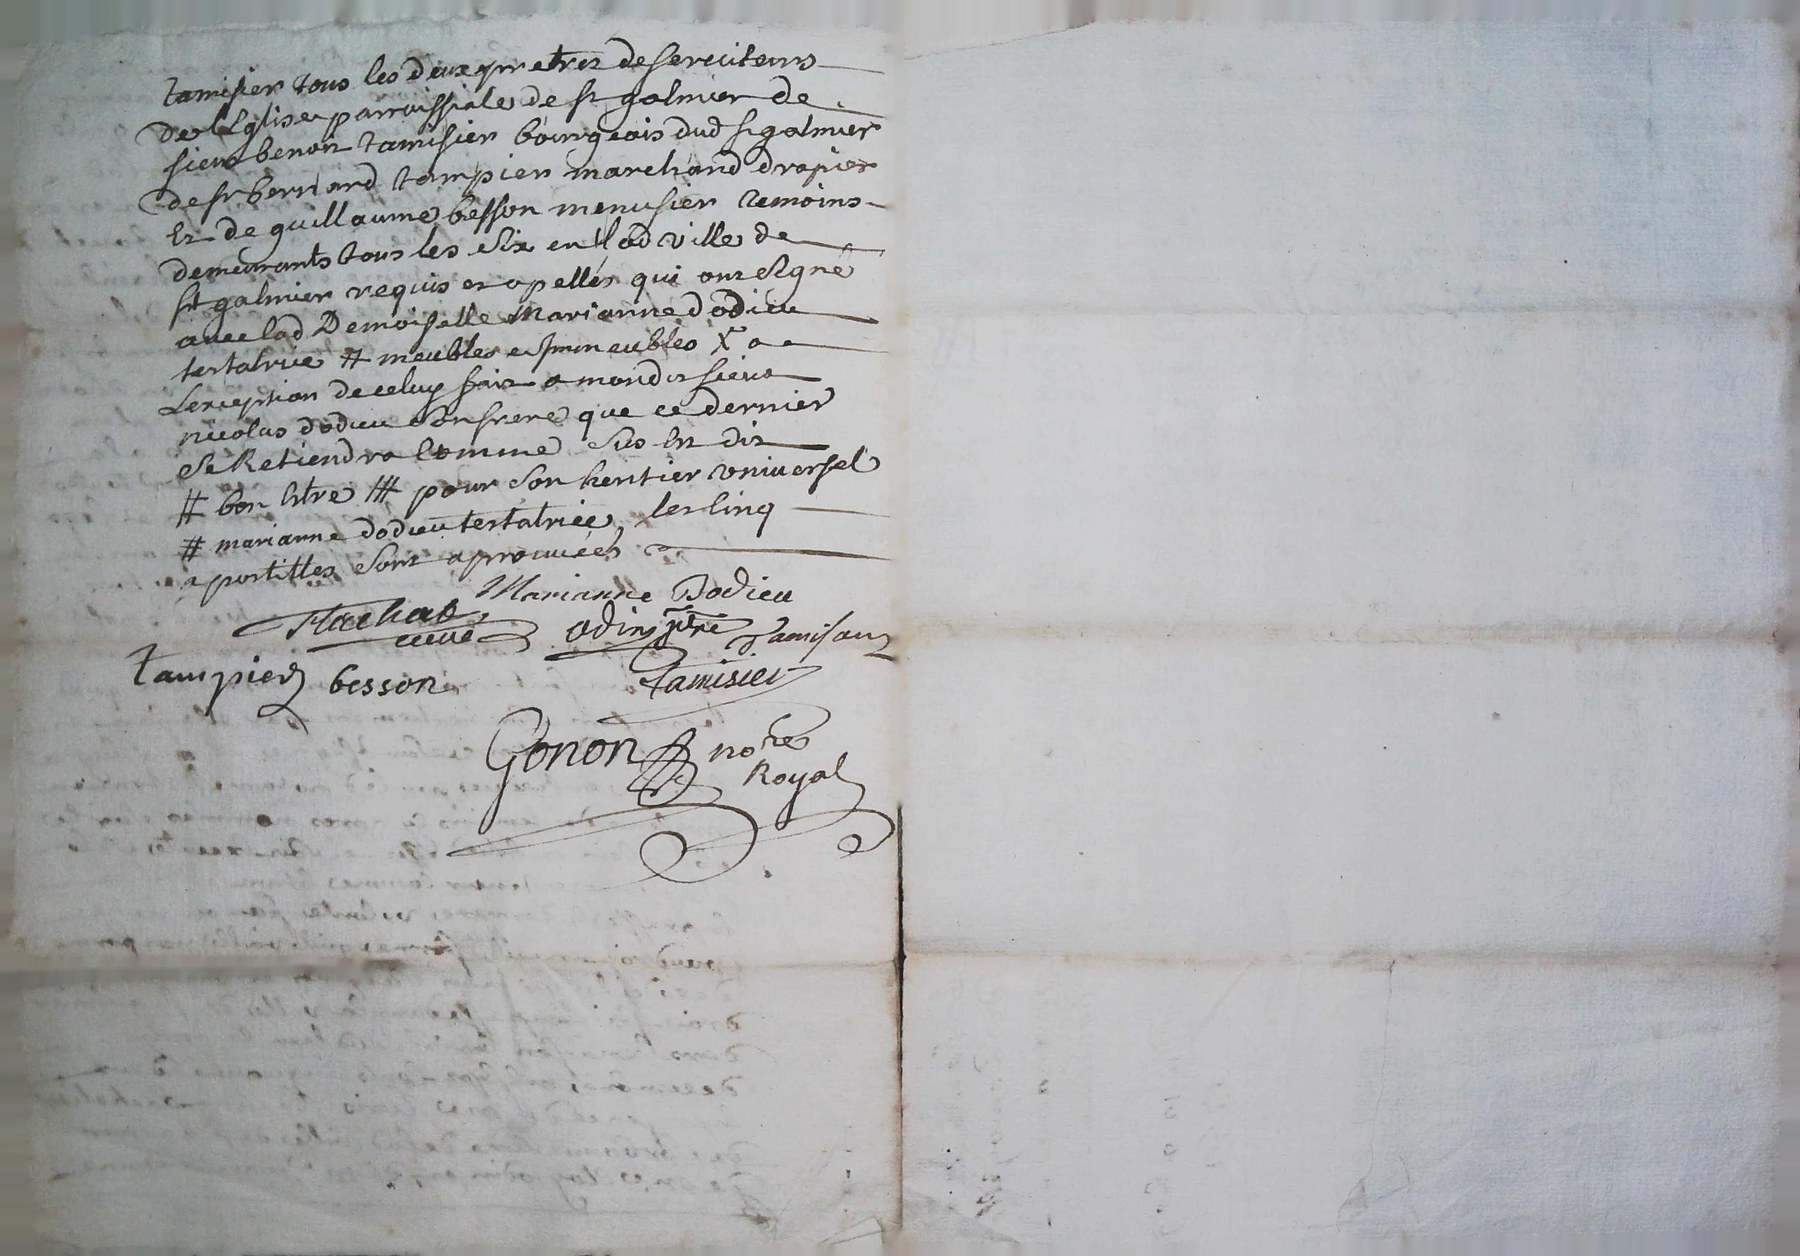 tamisier tous les deux pretres deserviteurs
de l'Eglise parroissiale de st galmier de
sieur benoit tamisier bourgeois dud st galmier
de sr bernard tampier marchand drapier
Et de guillaume besson menusier temoins
demeurants tous les six en lad ville de
st galmier requis et apellés qui ont signé
avec lad Demoiselle Marianne dodieu
testatrice # meubles et immeubles X a
Lexception de celuy fait a mondit sieur
nicolas dodieu son frere que ce dernier
se Retiendra Comme sus Est dit
# bon Estre ⧻ pour son heritier universel
# marianne dodieu testatrice, les cinq
apostilles sont aprouvées
Marianne Dodieu
Flachat
curé
odin ptre
Tamisier
tampier
besson
Tamisier
Gonon
no.re
Royal